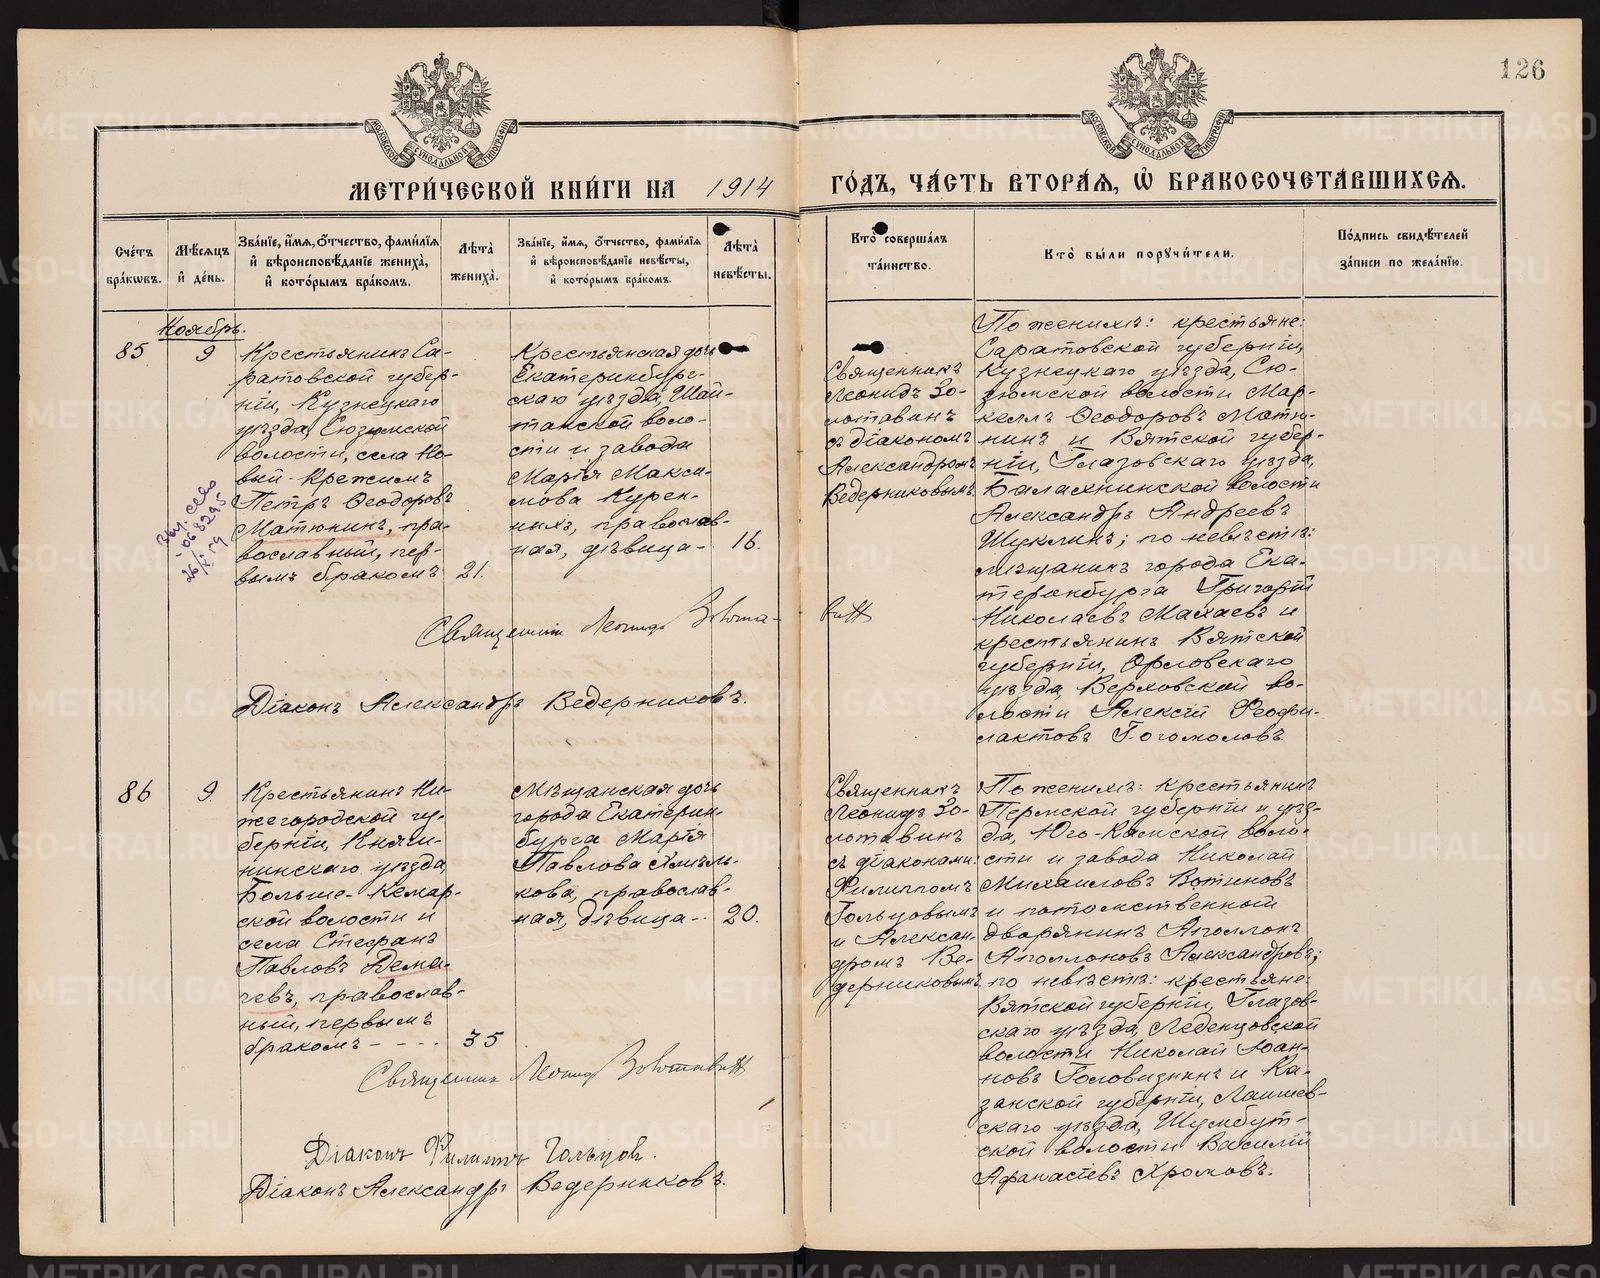 126
МОСКОВСКОЙ СѴНОДАЛЬНОЙ ТИПОГРАФІИ
МОСКОВСКОЙ СѴНОДАЛЬНОЙ ТИПОГРАФІИ
МЕТРИ́ЧЕСКОЙ КНИ́ГИ НА 1914
ГО́ДЪ, ЧА́СТЬ ВТОРА́Ѧ, Ѽ БРАКОСОЧЕТА́ВШИХСѦ.
Сче́тъ бра́кѡвъ.
Мѣ́сѧцъ и҆ де́нь.
Зва́нїе, и҆́мѧ, ѻ҆́тчество, фами́лїѧ и҆ вѣроисповѣ́данїе жениха̀, и҆ кото́рымъ бра́комъ.
Лѣ̑та̀ жениха̀.
Зва́нїе, и҆́мѧ, ѻ҆́тчество, фами́лїѧ и҆ вѣроисповѣ́данїе невѣ́сты, и҆ кото́рымъ бра́комъ.
Лѣ̑та̀ невѣ́сты.
Кто̀ соверша́лъ та́инство.
Кто̀ бы́ли порꙋчи́тели.
По́дпись свидѣ́телей за́писи по жела́нїю.
Ноябрь.
85
9
Крестьянинъ Са-
ратовской губер-
ніи, Кузнецкаго
уѣзда, Сюзюмской
волости, села Но-
вый-Крежимъ
Петръ Ѳеодоровъ
Матюнинъ, пра-
вославный, пер-
вымъ бракомъ
21.
26/X 19
Крестьянская дочь
Екатеринбург-
скаго уѣзда, Шай-
танской воло-
сти и завода
Марія Макси-
мова Курен-
ныхъ, православ-
ная, дѣвица-
16.
Священникъ
Леонидъ Зо-
лотавинъ
съ діакономъ
Александромъ
Ведерниковымъ
По женихѣ: крестьяне:
Саратовской губерніи,
Кузнецкаго уѣзда, Сю-
зюмской волости Мар-
келлъ Ѳеодоровъ Матю-
нинъ и Вятской губер-
ніи, Глазовскаго уѣзда,
Балахнинской волости
Александръ Андреевъ
Шуклинъ; по невѣстѣ:
мѣщанинъ города Ека-
теринбурга Григорій
Николаевъ Махаевъ и
крестьянинъ Вятской
губерніи, Орловскаго
уѣзда, Верховской во-
лости Алексій Ѳеофи-
лактовъ Гогомоловъ.
Священникъ Леонидъ Золота-
винъ
Діаконъ Александръ Ведерниковъ.
86
9
Крестьянинъ Ни-
жегородской гу-
берніи, Княги-
нинскаго уѣзда,
Больше-Кемар-
ской волости и
села Стефанъ
Павловъ Дема-
чевъ, православ-
ный, первымъ
бракомъ - - - -
35
Мѣщанская дочь
города Екатерин-
бурга Марія
Павлова Хмѣль-
кова, православ-
ная, дѣвица--
20.
Священникъ
Леонидъ Зо-
лотавинъ
съ діаконами:
Филиппомъ
Гольцовымъ
и Алексан-
дромъ Ве-
дерниковымъ
По женихѣ: крестьянинъ
Пермской губерніи и уѣз-
да, Юго-Камской воло-
сти и завода Николай
Михаиловъ Вотиновъ
и потомственный
дворянинъ Аполлонъ
Аполлоновъ Александровъ;
по невѣстѣ: крестьяне:
Вятской губерніи, Глазов-
скаго уѣзда, Леденцовской
волости Николай Іоан-
новъ Головизнинъ и Ка-
занской губерніи, Лаишев-
скаго уѣзда, Шумбут-
ской волости Василій
Афанасіевъ Хромовъ.
Священникъ Леонидъ Золотавинъ
Діаконъ Филиппъ Гольцовъ.
Діаконъ Александръ Ведерниковъ.
METRIKI.GASO-URAL.RU